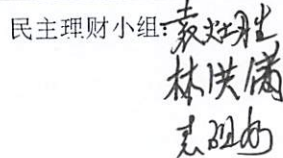 民主理财小组:袁灶胜
林洪满